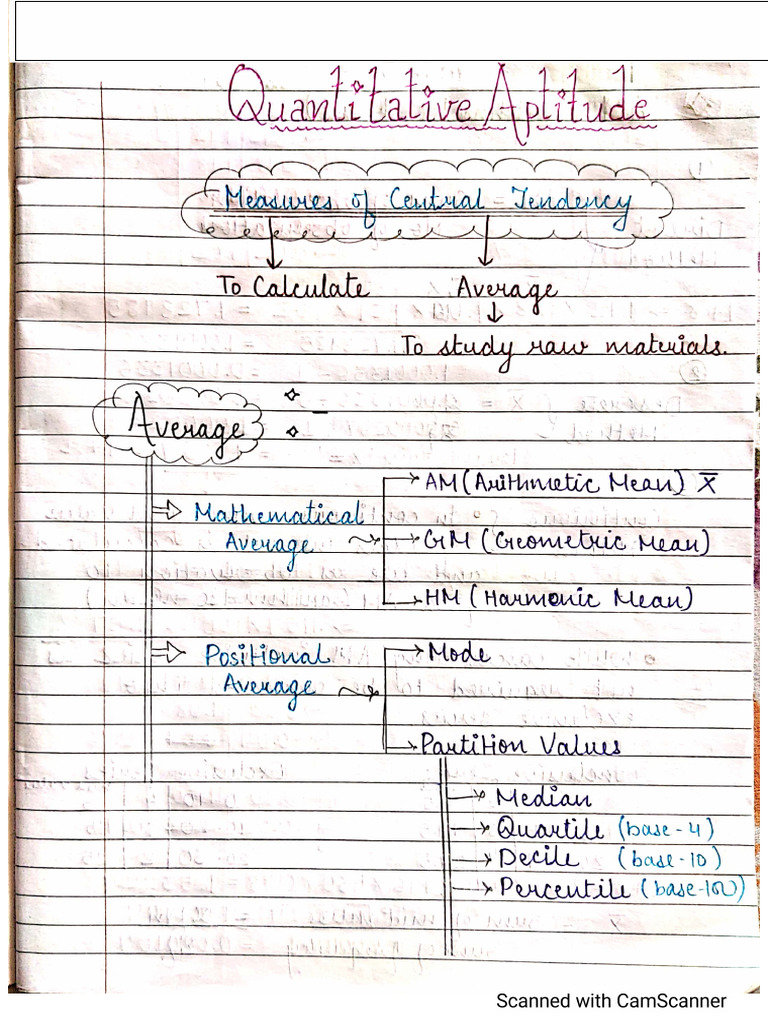 Quantitative Aptitude
Measures of Central Tendency
To Calculate Average
To study raw materials.
Average
AM (Arithmetic Mean) X̅
Mathematical Average
GM (Geometric Mean)
HM (Harmonic Mean)
Positional Average
Mode
Partition Values
Median
Quartile (base-4)
Decile (base-10)
Percentile (base-100)
Scanned with CamScanner